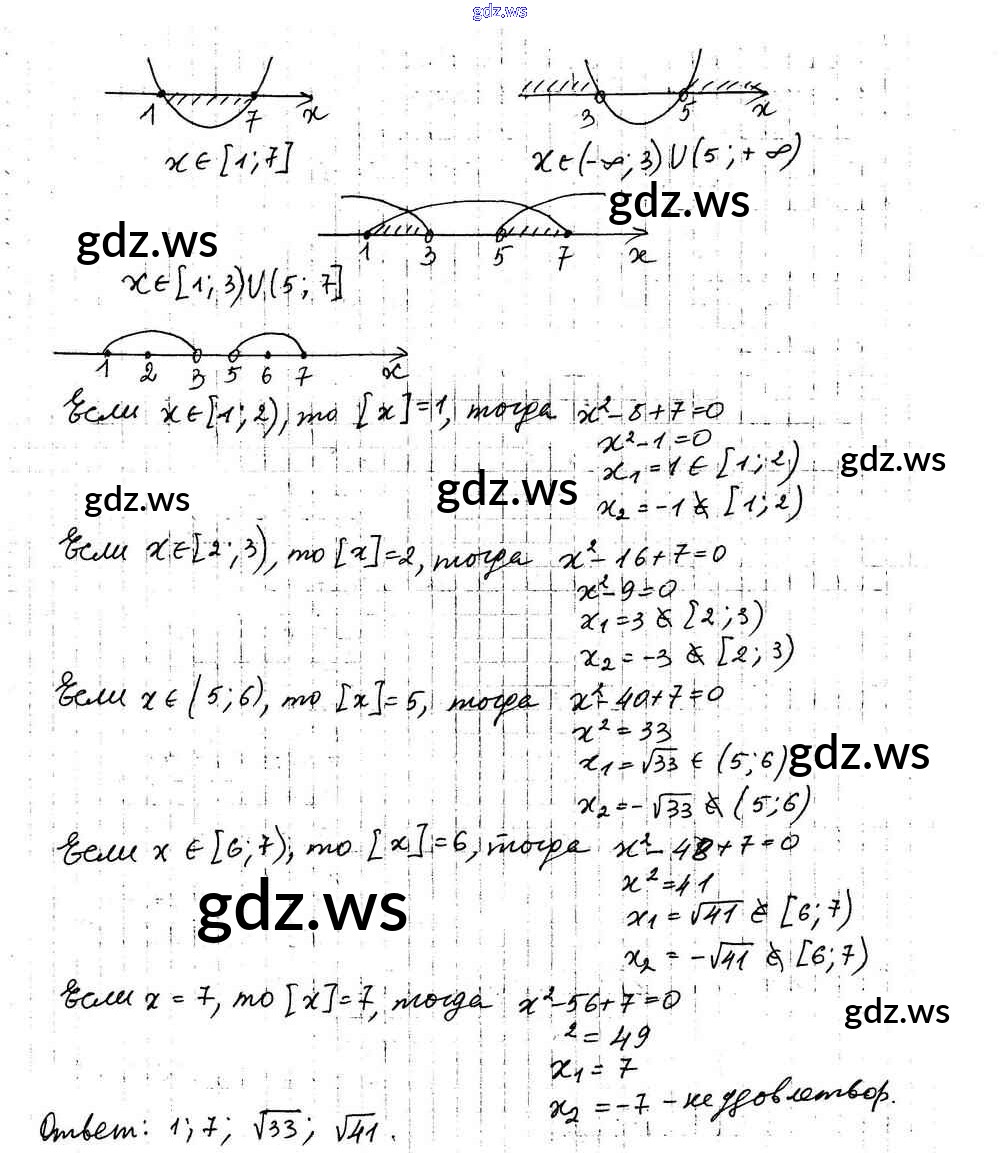 gdz.ws
1 7 x 3 5 x
x ∈ [1; 7] x ∈ (-∞; 3) ∪ (5; +∞)
gdz.ws
gdz.ws
1 3 5 7 x
x ∈ [1; 3) ∪ (5; 7]
1 2 3 5 6 7 x
Если x ∈ [1; 2), то [x] = 1, тогда x² - 8 + 7 = 0
x² - 1 = 0
x₁ = 1 ∈ [1; 2)
gdz.ws
x₂ = -1 ∉ [1; 2)
gdz.ws
gdz.ws
Если x ∈ [2; 3), то [x] = 2, тогда x² - 16 + 7 = 0
x² - 9 = 0
x₁ = 3 ∉ [2; 3)
x₂ = -3 ∉ [2; 3)
Если x ∈ (5; 6), то [x] = 5, тогда x² - 40 + 7 = 0
x² = 33
x₁ = √33 ∈ (5; 6)
gdz.ws
x₂ = -√33 ∉ (5; 6)
Если x ∈ [6; 7), то [x] = 6, тогда x² - 48 + 7 = 0
x² = 41
gdz.ws
x₁ = √41 ∈ [6; 7)
x₂ = -√41 ∉ [6; 7)
Если x = 7, то [x] = 7, тогда x² - 56 + 7 = 0
gdz.ws
² = 49
x₁ = 7
x₂ = -7 - не удовлетвор.
Ответ: 1; 7; √33; √41.